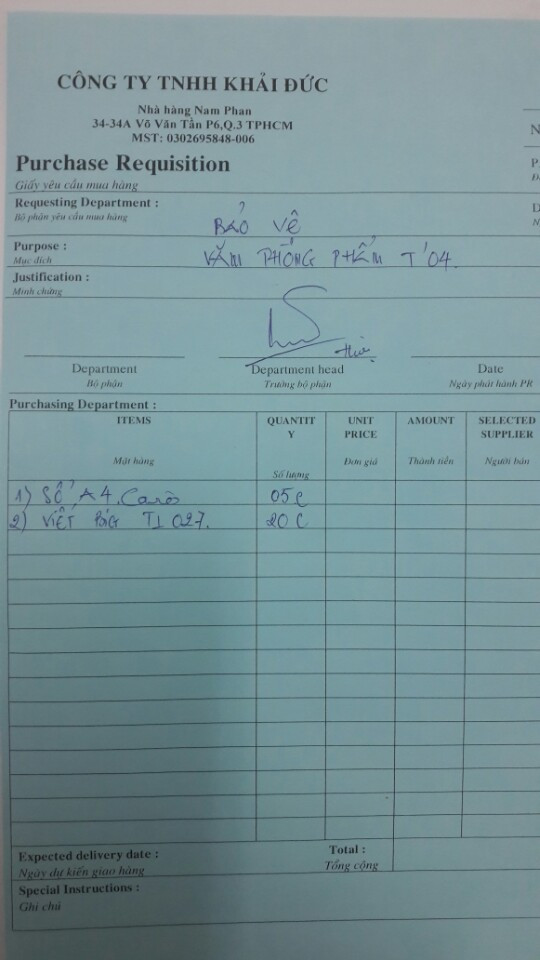 CÔNG TY TNHH KHẢI ĐỨC
Nhà hàng Nam Phan
34-34A Võ Văn Tần P6,Q.3 TPHCM
MST: 0302695848-006
Purchase Requisition
Giấy yêu cầu mua hàng
Requesting Department :
Bộ phận yêu cầu mua hàng
BẢO VỆ
Purpose :
Mục đích
VĂN PHÒNG PHẨM T'04.
Justification :
Minh chứng
Department
Bộ phận
Department head
Trưởng bộ phận
Date
Ngày phát hành PR
Purchasing Department :
ITEMS QUANTIT UNIT AMOUNT SELECTED
Y PRICE SUPPLIER
Mặt hàng Số lượng Đơn giá Thành tiền Người bán
1) SỔ A4. Carô 05 C
2) VIẾT TL 027. 20 C
Expected delivery date :
Ngày dự kiến giao hàng
Total :
Tổng cộng
Special Instructions :
Ghi chú